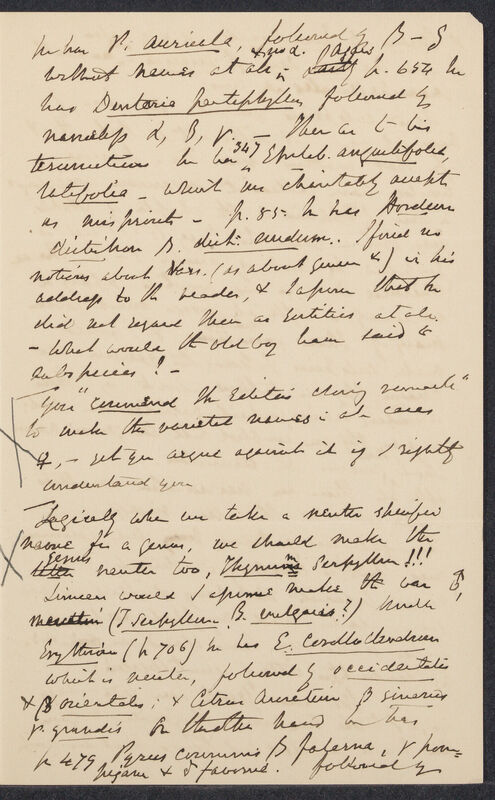 he has P. auricula, followed by β – δ
without names at all – & mod. Pages p. 654 he
has Dentaria pentaphyllos followed by
nameless α, β, γ. – Then as to his
termination he has 347 "Epilob. angustifolia,
latifolia – which we charitably accept
as misprints – p. 85 he has Hordeum
distichon β. dist. nudum. I find no
notices about Vars. (as about genera &) in his
address to the reader, & I assume that he
did not regard them as entities at all.
– What would the old boy have said to
subspecies! –
You "commend the Editors closing remark"
to make the varietal names in all cases
♀, – yet you argue against it if I rightly
understand you
Logically when we take a neuter specific
name for a genus, we should make the
genus neuter too, Thymum Serpyllum!!!
Linneus would I assume make the var ♂,
(T. Serpyllum β. vulgaris?) under
Erythrina (p 706) he has E. Corallodendrum
which is neuter, followed by occidentalis
& β orientalis; & Citrus Aurantium β sinensis
γ. grandis On the other hand he has
p 479 Pyrus communis β falerna, γ pom-
pejana & δ favonia. followed by